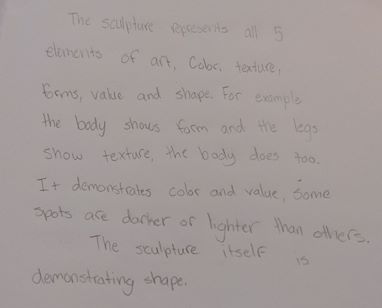 The sculpture represents all 5
elements of art, Color, texture,
forms, value and shape. For example
the body shows form and the legs
show texture, the body does too.
It demonstrates color and value, Some
spots are darker or lighter than others.
The sculpture itself is
demonstrating shape.